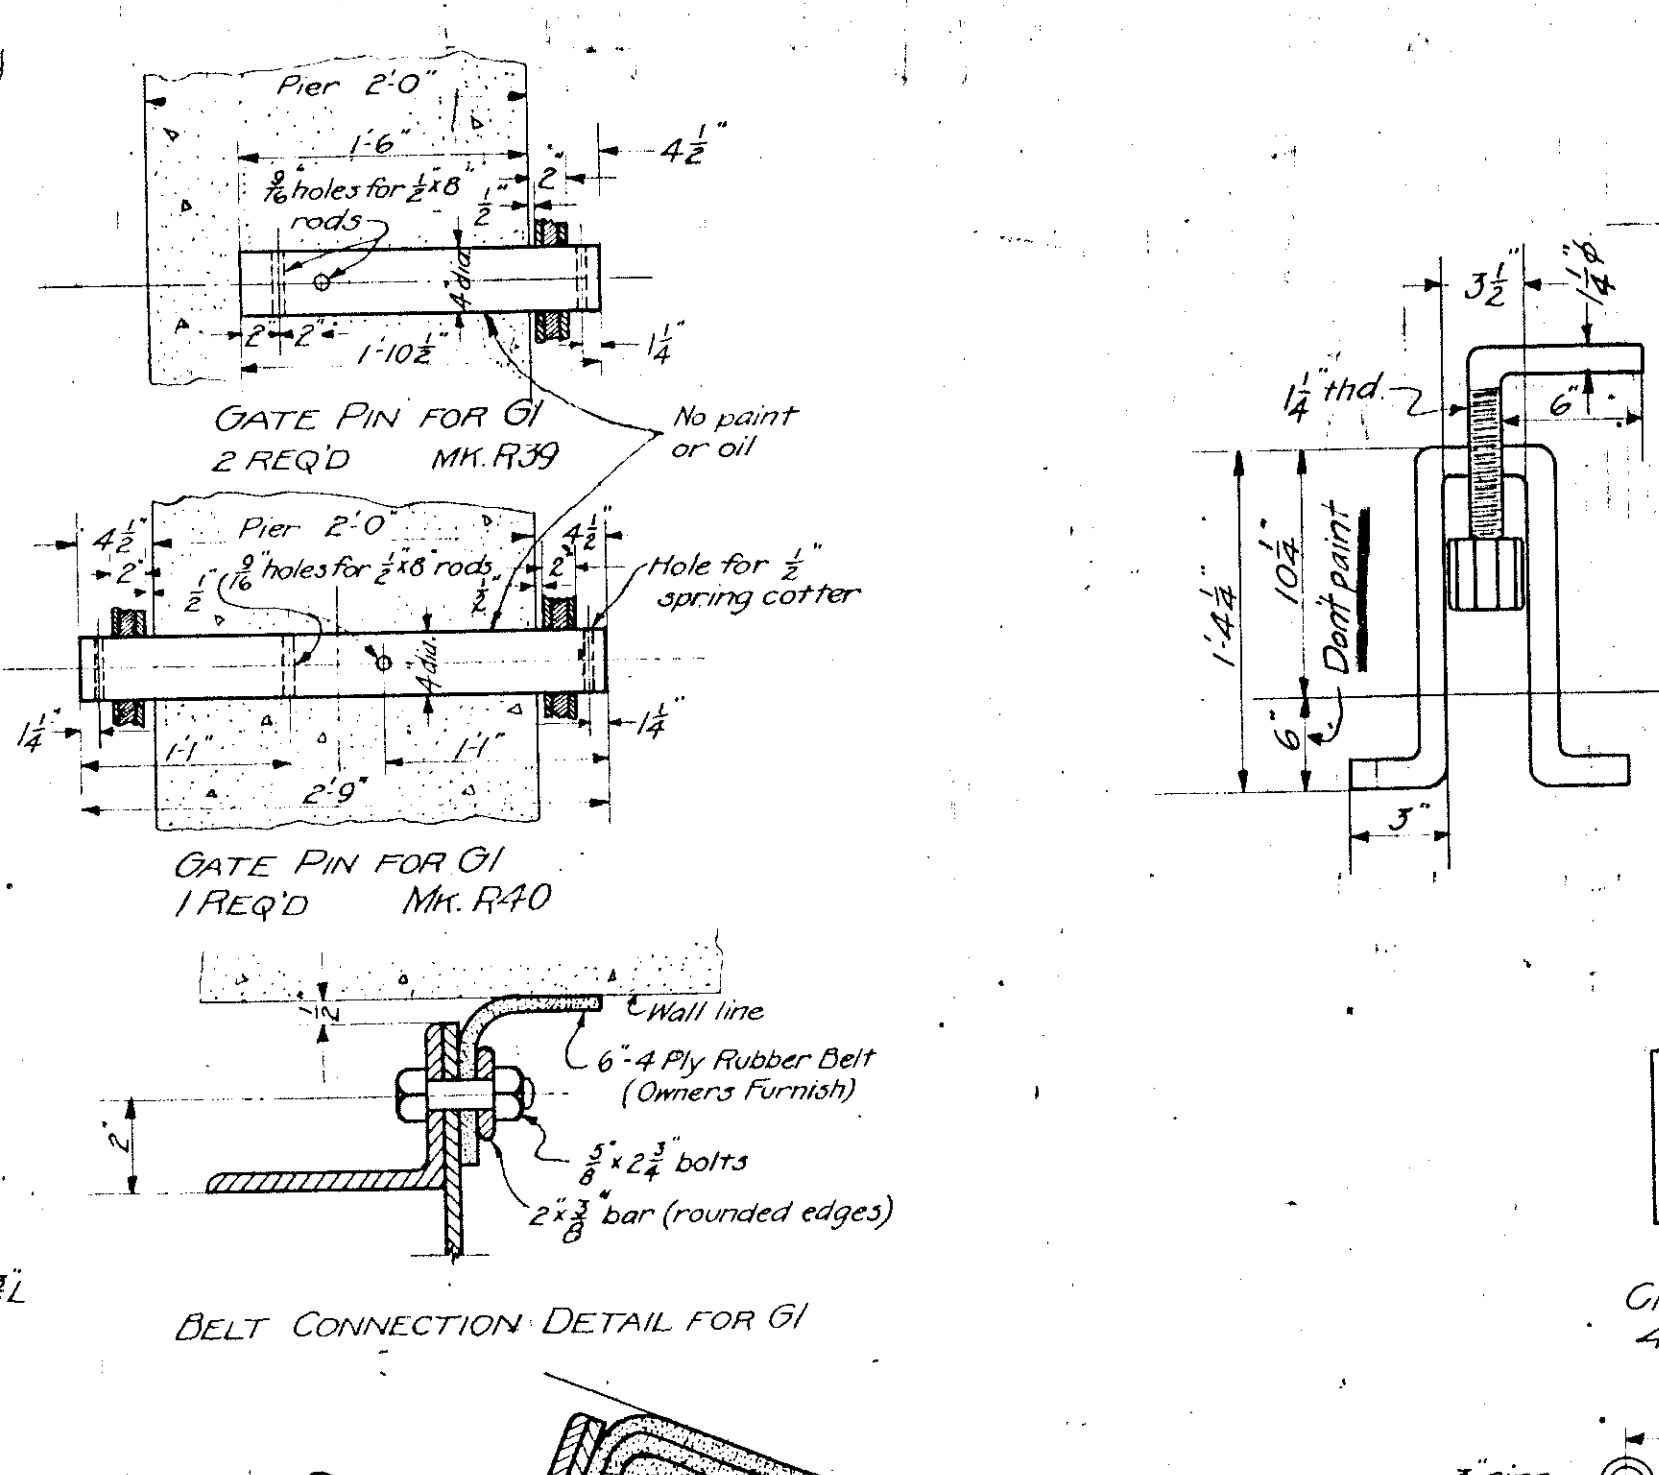 Pier 2'-0"
1'-6"
4 1/2"
2"
9/16" holes for 1/2" x 8"
rods
1/2"
4" dia.
2" 2"
1'-10 1/2"
1 1/4"
GATE PIN FOR G1
2 REQ'D MK. R39
No paint
or oil
Pier 2'-0"
4 1/2"
4 1/2"
2"
2"
9/16" holes for 1/2" x 8" rods
1/2"
1/2"
Hole for 1/2"
spring cotter
4" dia.
1 1/4"
1 1/4"
1'-1"
1'-1"
2'-9"
GATE PIN FOR G1
1 REQ'D MK. R40
1/2"
Wall line
6"-4 Ply Rubber Belt
(Owners Furnish)
2"
5/8" x 2 3/4" bolts
2" x 3/8" bar (rounded edges)
BELT CONNECTION DETAIL FOR G1
3 1/2"
1 1/4" ø
1 1/4" thd.
6"
1'-4 1/4"
10 1/4"
Don't paint
6"
3"